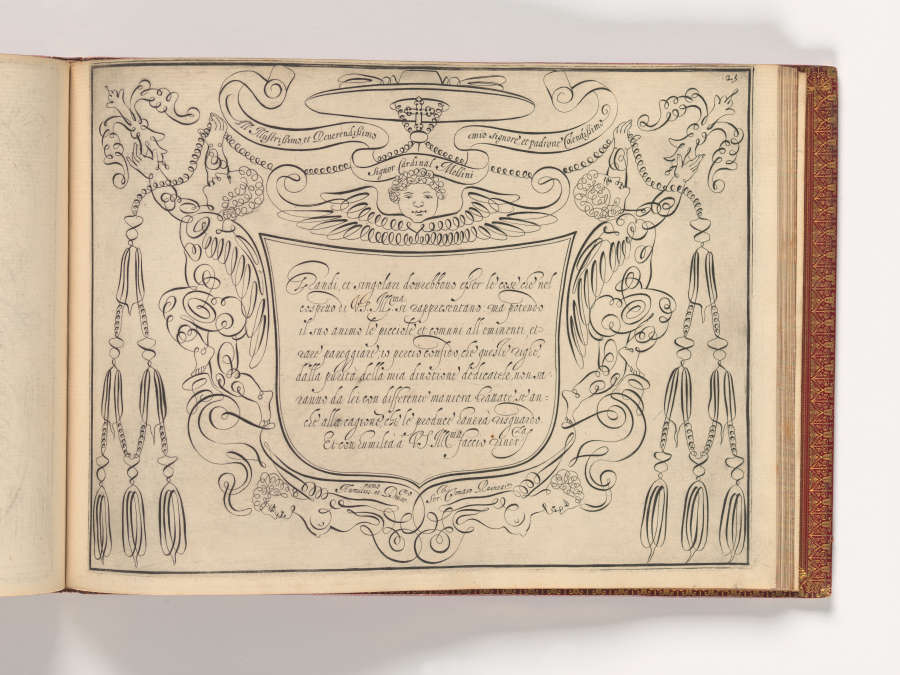 23
All Illustrissimo et Reverendissimo
mio signore, et padrone Colendissimo
Signor Cardinal Messini
Grandi, et singolari dovrebbono esser le cose che nel
cospetto di V.S. Ill.ma si rappresentano; ma potendo
il suo animo le picciole et comuni all eminenti, et
rare pareggiare, io perciò confido, che queste righe,
dalla purità della mia divotione dedicatele, non sa-
ranno da lei con differente maniera trattate, se an-
che alla cagione, che le produce haverà risguardo.
Et con humiltà à V.S. Ill.ma faccio river.za
Humiliss.mo et